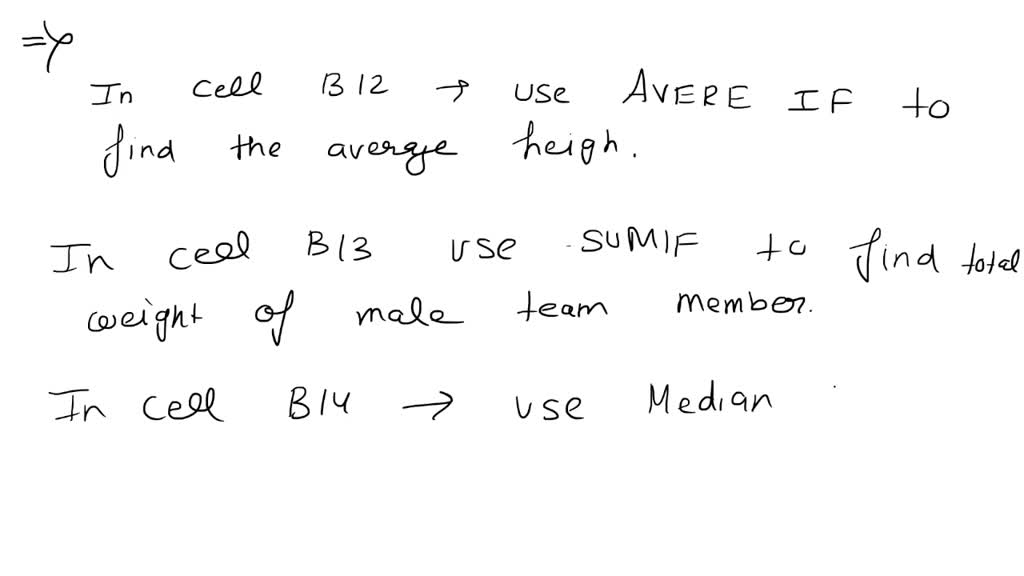 =>
In cell B12 → use AVERE IF to
find the average heigh.
In cell B13 use SUMIF to find total
weight of male team member.
In cell B14 → use Median